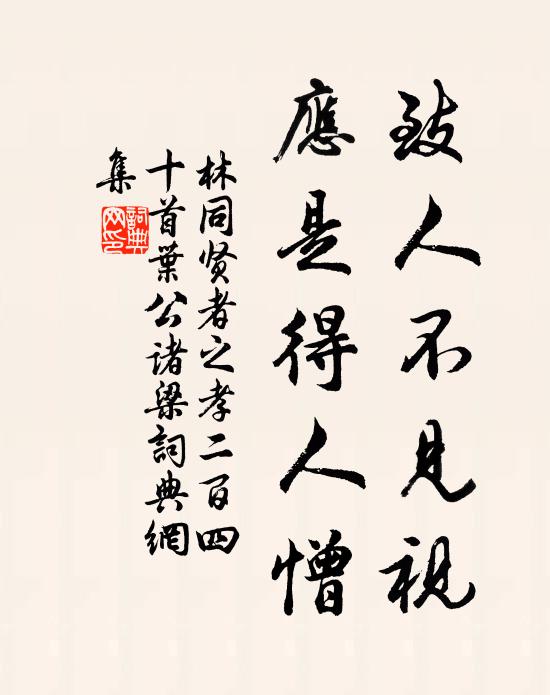 致人不見視
應是得人憎
林同贤者之孝二百四
十首葉公诸梁詞典網
集
詞典网印